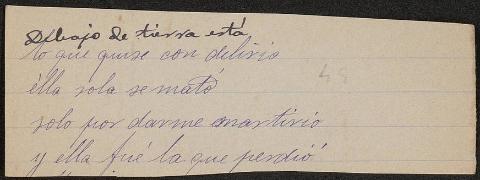 Debajo de tierra está
lo que quise con delirio
élla sola se mató
solo por darme martirio
y ella fué la que perdió
48